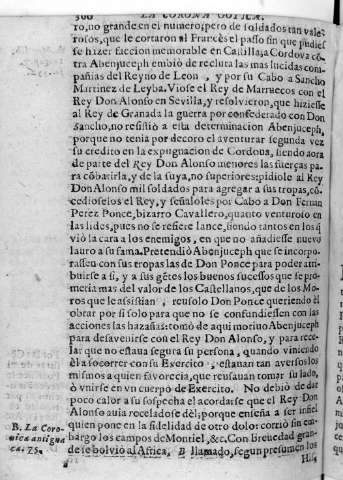 300 LA CORONA GOTICA.
ro, no grande en el numero; pero de soldados tan vale-
rosos, que le cortaron al Francès el passo sin que pudies-
se hazer faccion memorable en Castilla; a Cordova cõ-
tra Abenjuceph embiò de recluta las mas lucidas com-
pañias del Reyno de Leon, y por su Cabo a Sancho
Martinez de Leyba. Viose el Rey de Marruecos con el
Rey Don Alonso en Sevilla, y resolvieron, que hiziesse
al Rey de Granada la guerra por confederado con Don
Sancho, no resistiò a esta determinacion Abenjuceph,
porque no tenia por decoro el aventurar segunda vez
su credito en la expugnacion de Cordova, siendo aora
de parte del Rey Don Alonso menores las fuerças pa-
ra cõbatirla, y de la suya, no superiores: pidiole al Rey
Don Alonso mil soldados para agregar a sus tropas, cõ-
cediòselos el Rey, y señaloles por Cabo a Don Fernan
Perez Ponce, bizarro Cavallero, quanto venturoso en
las lides, pues no se refiere lance, siendo tantos en los q̃
viò la cara a los enemigos, en que no añadiesse nuevo
lauro a su fama. Pretendiò Abenjuceph que se incorpo-
rassen con sus tropas las de Don Ponce para poder atri-
buirse a sì, y a sus gẽtes los buenos sucessos que se pro-
metia mas del valor de los Castellanos, que de los Mo-
ros que le assistian, reusolo Don Ponce queriendo èl
obrar por sì solo para que no se confundiessen con las
acciones las hazañas: tomò de aqui motiuo Abenjuceph
para desavenirse con el Rey Don Alonso, y para rece-
lar que no estaua segura su persona, quando viniendo
èl a socorrer con su Exercito, estauan tan aversos los
mismos a quien favorecia, que reusauan tomar su lado,
ò vnirse en vn cuerpo de Exercito. No debiò de dar
poco calor a su sospecha el acordarse que el Rey Don
Alonso auia rezeladose dèl; porque enseña a ser infiel
quien pone en la fidelidad de otro dolo: corriò sin em-
bargo los campos de Montiel, &c. Con breuedad gran-
de se bolviò al Africa, B llamado, segun presumen los
His-
B. La Coro-
nica antigua
ca. 75.